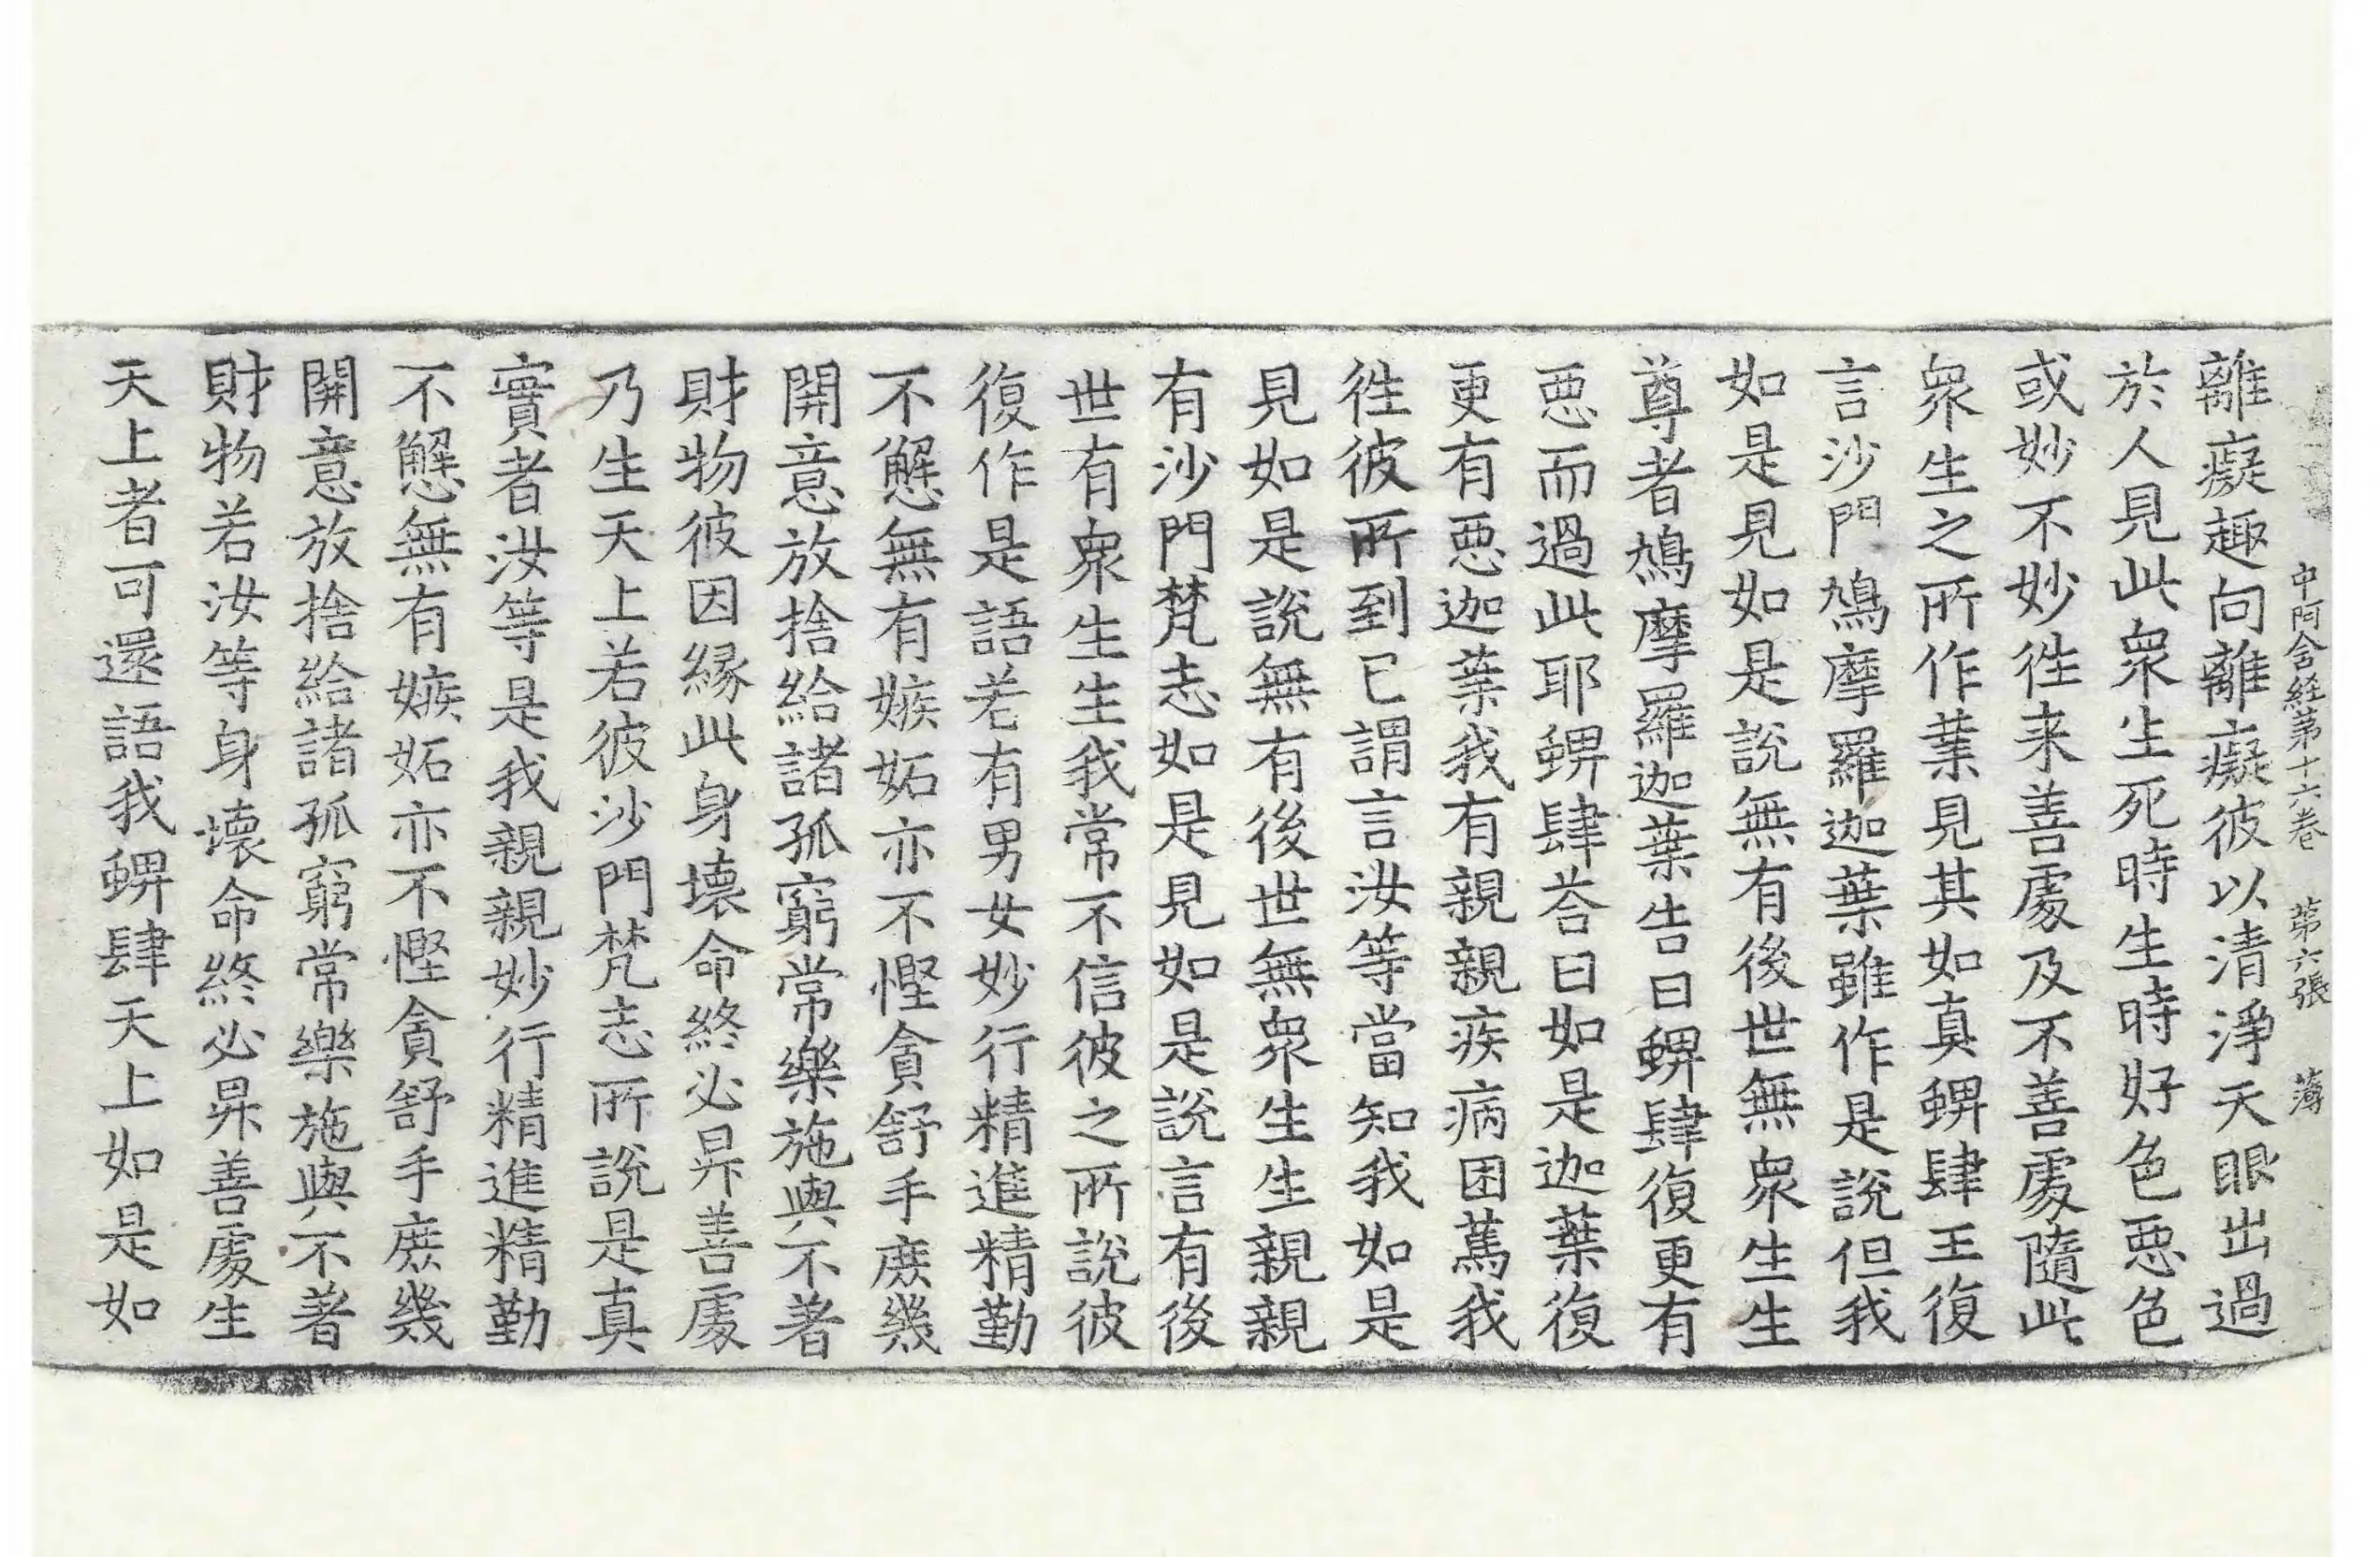 中阿含経第十六巻 第六張 薄
離癡趣向離癡彼以清淨天眼出過
於人見此衆生死時生時好色惡色
或妙不妙徃来善處及不善處隨此
衆生之所作業見其如真蜱肆王復
言沙門鳩摩羅迦葉雖作是說但我
如是見如是說無有後世無衆生生
尊者鳩摩羅迦葉告曰蜱肆復更有
惡而過此耶蜱肆荅曰如是迦葉復
更有惡迦葉我有親親疾病困篤我
徃彼所到已謂言汝等當知我如是
見如是說無有後世無衆生生親親
有沙門梵志如是見如是說言有後
世有衆生生我常不信彼之所說彼
復作是語若有男女妙行精進精勤
不懈無有嫉妬亦不慳貪舒手庶幾
開意放捨給諸孤窮常樂施與不著
財物彼因縁此身壞命終必昇善處
乃生天上若彼沙門梵志所說是真
實者汝等是我親親妙行精進精勤
不懈無有嫉妬亦不慳貪舒手庶幾
開意放捨給諸孤窮常樂施與不著
財物若汝等身壞命終必昇善處生
天上者可還語我蜱肆天上如是如